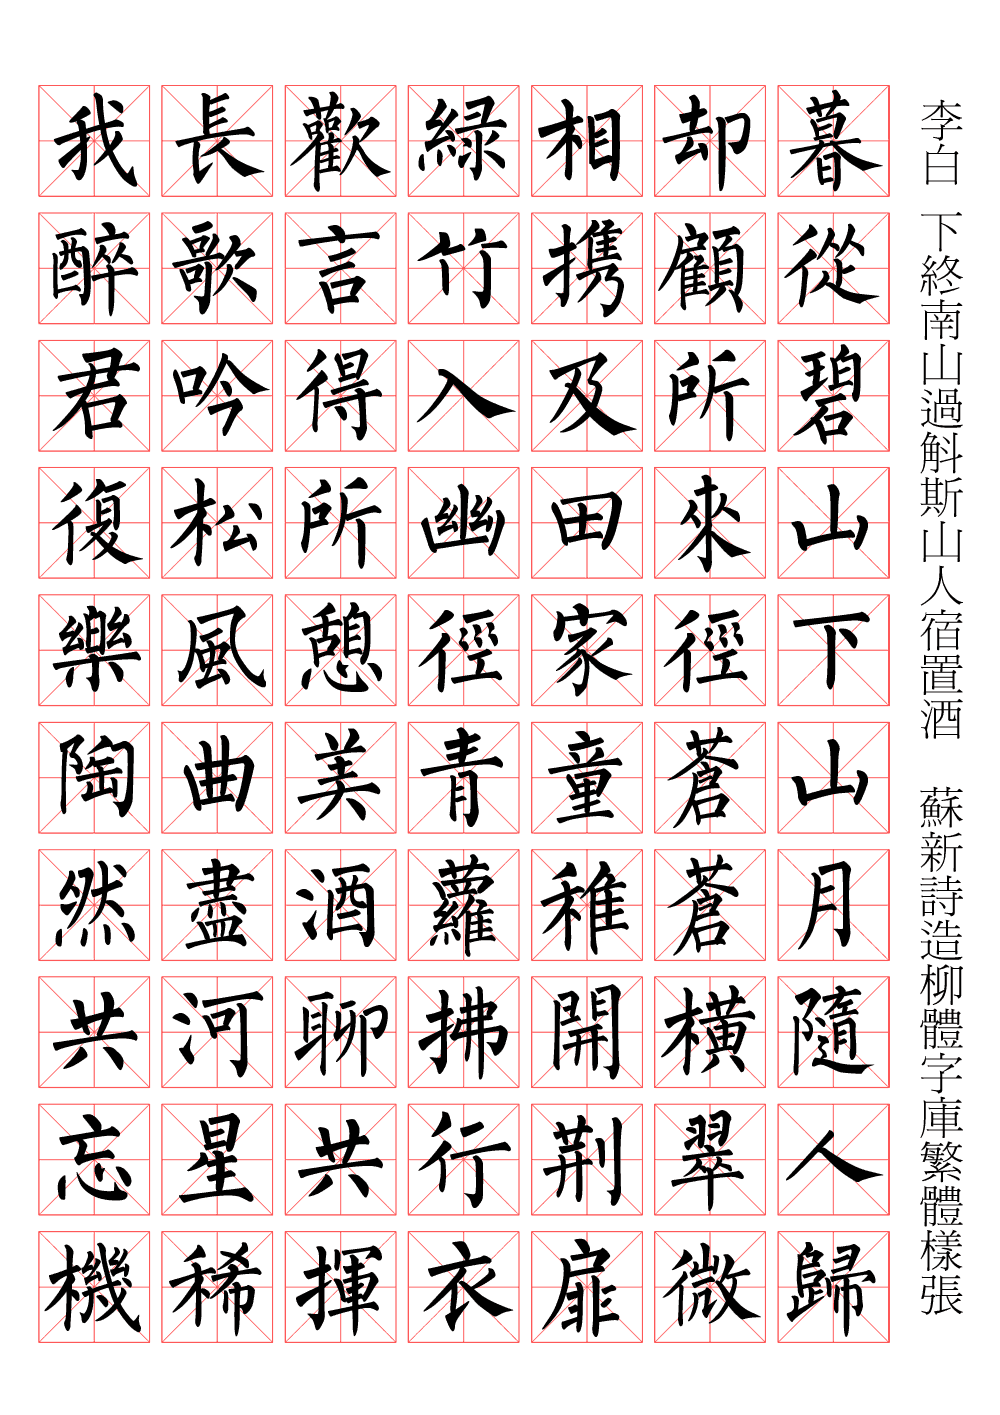 李白 下終南山過斛斯山人宿置酒 蘇新詩造柳體字庫繁體樣張
暮從碧山下山月隨人歸
却顧所來徑蒼蒼橫翠微
相携及田家童稚開荆扉
緑竹入幽徑青蘿拂行衣
歡言得所憩美酒聊共揮
長歌吟松風曲盡河星稀
我醉君復樂陶然共忘機